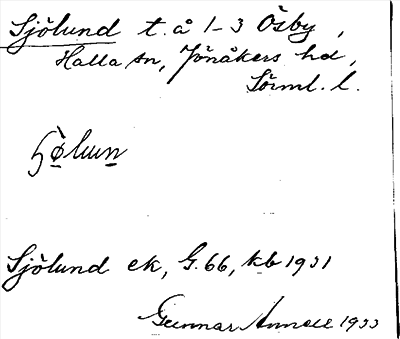 Sjölund t. å 1-3 Ösby,
Halla sn, Jönåkers hd,
Sörml. l.
Sjölund ek, G. 66, kb 1931
Gunnar Annell 1933